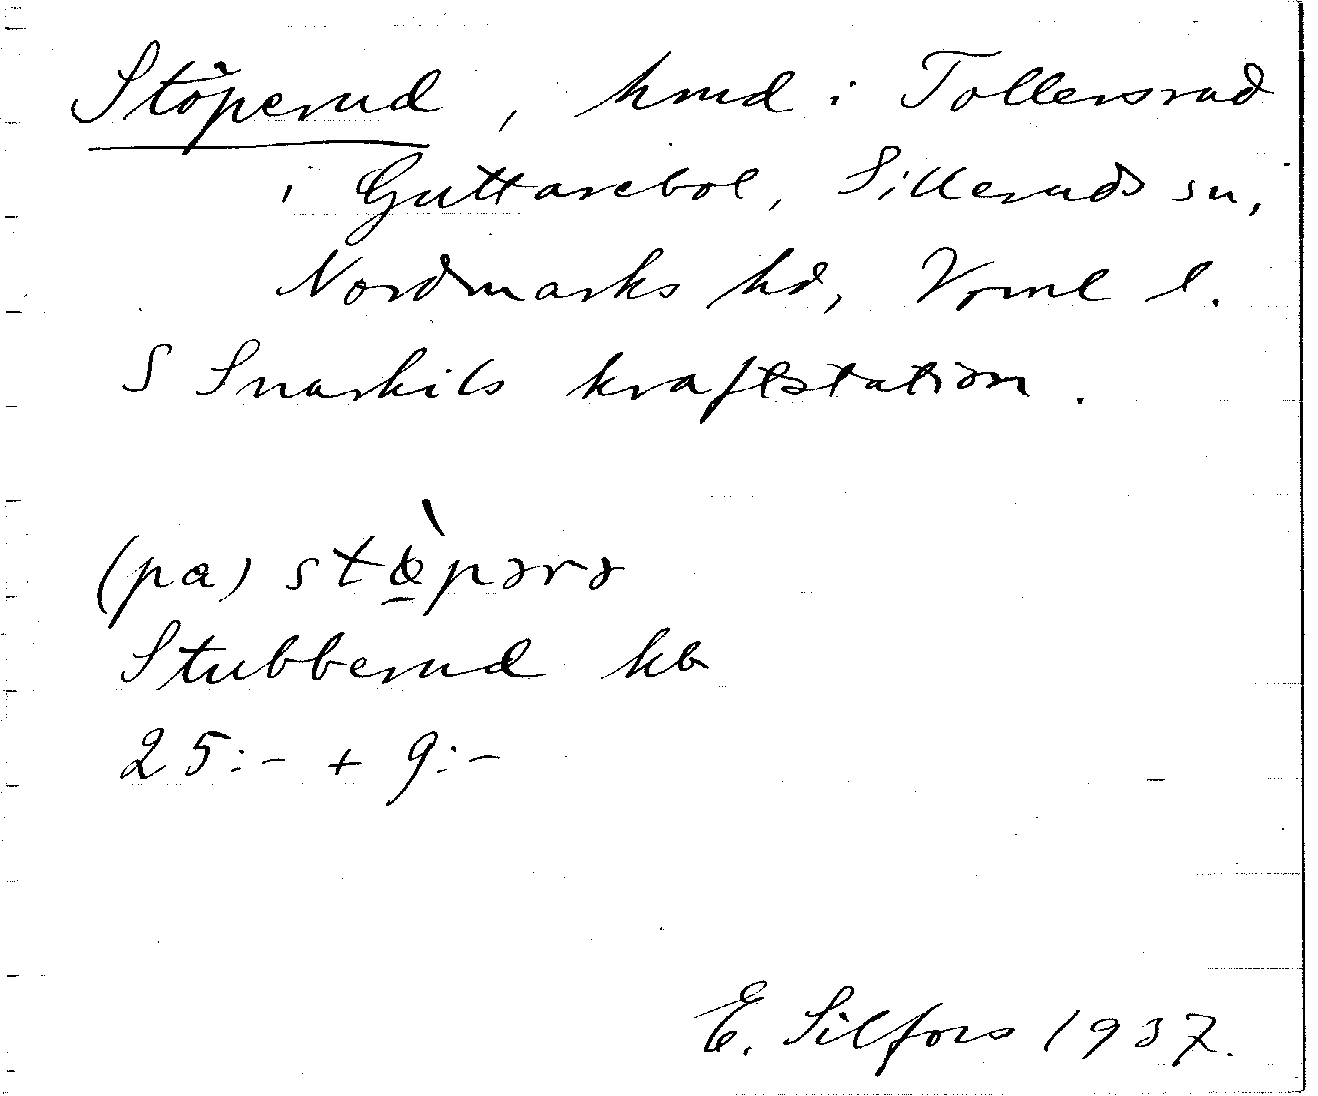 Stöperud, hmd i Tollersrud
i Guttarebol, Silleruds sn,
Nordmarks hd, Vrml l.
S Snarkils kraftstation.
(pa) stö̀pərə
Stubberud kb
25:- + 9:-
E. Silfors 1937.